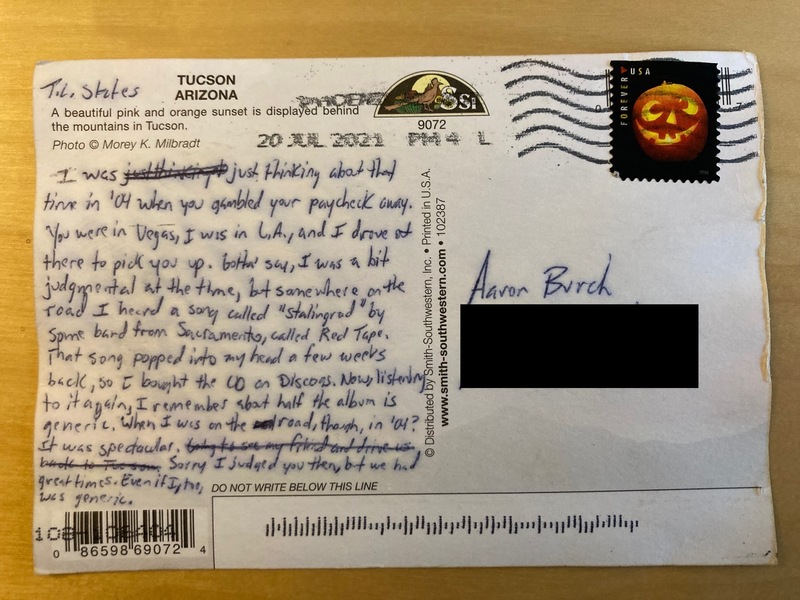 T.L. States
TUCSON
ARIZONA
A beautiful pink and orange sunset is displayed behind
the mountains in Tucson.
Photo © Morey K. Milbradt
9072
PHOENIX
20 JUL 2021 PM 4 L
FOREVER USA
I was just thinking about that
time in '04 when you gambled your paycheck away.
You were in Vegas, I was in L.A., and I drove out
there to pick you up. Gotta' say, I was a bit
judgmental at the time, but somewhere on the
road I heard a song called "Stalingrad" by
some band from Sacramento, called Red Tape.
That song popped into my head a few weeks
back, so I bought the CD on Discogs. Now, listening
to it again, I remember about half the album is
generic. When I was on the road, though, in '04?
It was spectacular. Going to see my friend and drive us
back to Tucson. Sorry I judged you then, but we had
great times. Even if I, too,
was generic.
© Distributed by Smith-Southwestern, Inc. • Printed in U.S.A.
www.smith-southwestern.com • 102387
Aaron Burch
DO NOT WRITE BELOW THIS LINE
0 86598 69072 4